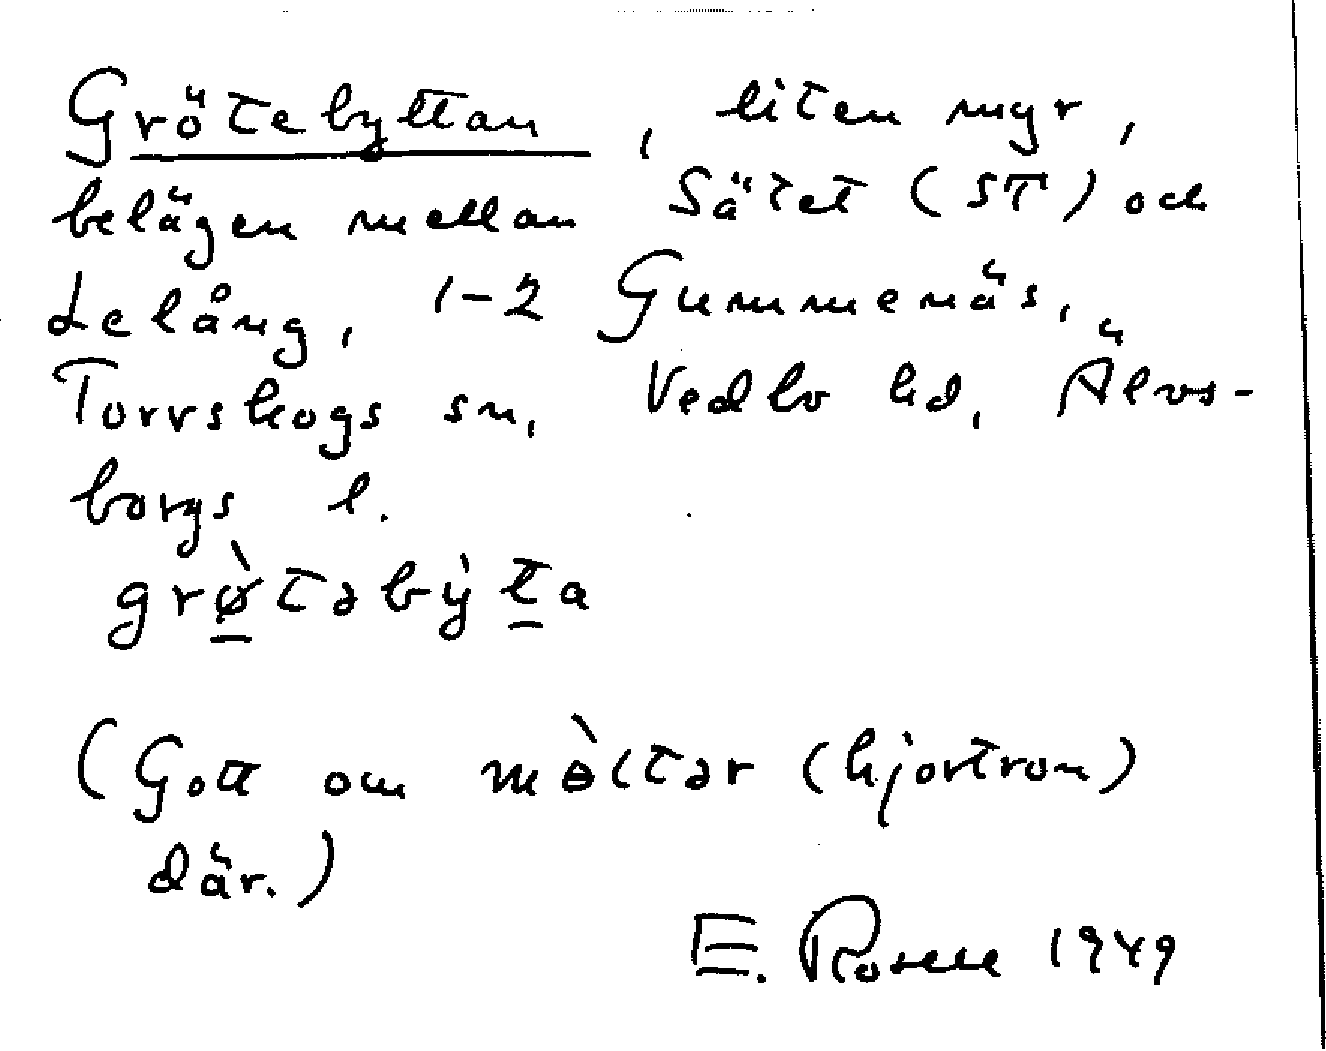 Grötebyttan, liten myr,
belägen mellan Sätet (ST) och
Lelång, 1-2 Gummenäs,
Torrskogs sn, Vedbo hd, Älvs-
borgs l.
grø̀təbỳta
(Gott om mòltər (hjortron)
där.)
E. Rosell 1949